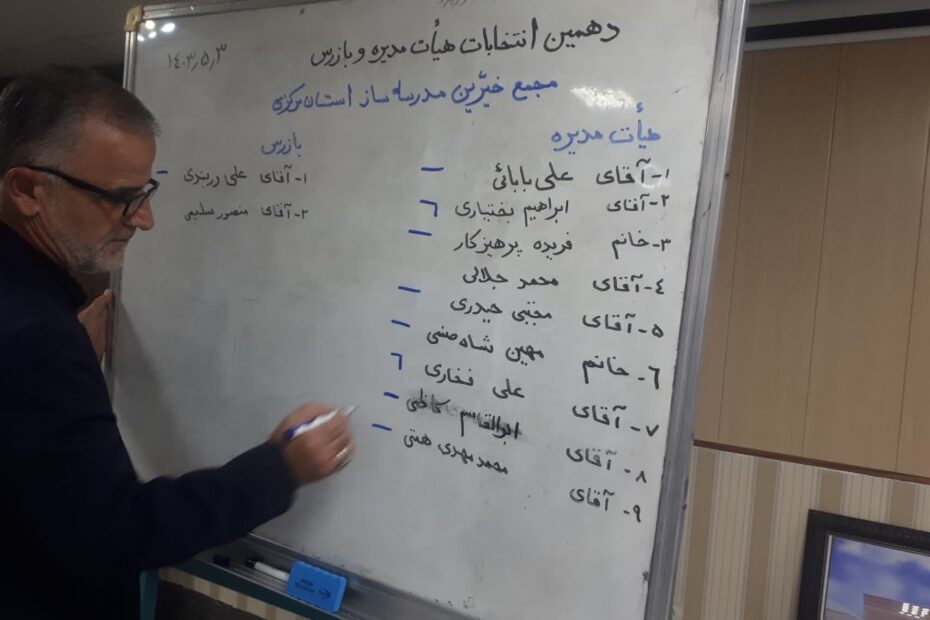 ۱۴۰۳٫۵٫۳
دهمین انتخابات هیأت مدیره و بازرس
مجمع خیّرین مدرسه ساز استان مرکزی
هیأت مدیره
۱- آقای علی بابائی
۲- آقای ابراهیم بختیاری
۳- خانم فریده پرهیزکار
۴- آقای محمد جلالی
۵- آقای مجتبی حیدری
۶- خانم مهین شاه منسی
۷- آقای علی فخاری
۸- آقای ابوالقاسم کاظمی
۹- آقای محمد مهدی همتی
بازرس
۱- آقای علی دربندی
۲- آقای منصور سلیمی